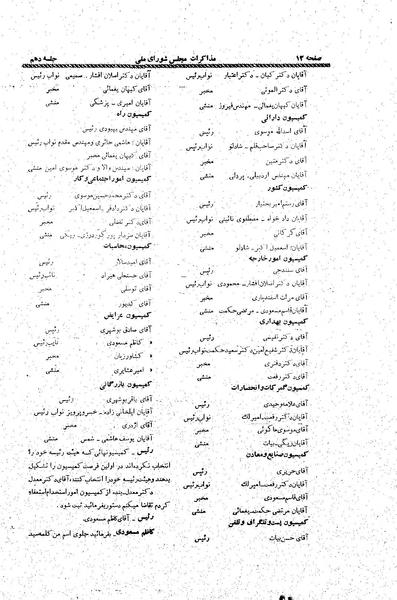 صفحه ۱۲
مذاکرات مجلس شورای ملی
جلسه دهم
آقایان دکتر کیان - دکتر اعتبار نواب رئیس
آقای دکتر الموتی مخبر
آقایان کیهان یغمائی - مهندس فیروز منشی
کمیسیون دارائی
آقای اسدالله موسوی رئیس
آقایان دکتر صاحب قلم - شادلو نواب رئیس
آقای دکتر متین مخبر
آقایان مهندس اردبیلی - منشی
کمیسیون کشور
آقای بختیار رئیس
آقایان داد خواه - مصطفوی نائینی نواب رئیس
آقای مخبر
آقایان اسمعیل - شادلو منشی
کمیسیون امور خارجه
آقای سنندجی رئیس
آقایان دکتر اصلان افشار - محمودی نواب رئیس
آقای اسفندیاری مخبر
آقایان قاسم مسعودی - مرتضی حکمت منشی
کمیسیون بهداری
آقای دکتر رئیس
آقایان دکتر شفیع امین - دکتر سعید حکمت نواب رئیس
آقای دکتر مخبر
آقای دکتر رفعت منشی
کمیسیون گمرکات و انحصارات
آقای غلامه وحیدی رئیس
آقایان دکتر رفعت - نواب رئیس
آقای موسوی ماکوئی مخبر
آقایان - بیات منشی
کمیسیون صنایع و معادن
آقای حریری رئیس
آقایان دکتر رفعت - نواب رئیس
آقای قاسم مسعودی مخبر
آقایان مرتضی حکمت - یغمائی منشی
کمیسیون پست و تلگراف و تلفن
آقای حسن بیات رئیس
آقایان دکتر اصلان افشار - صمیمی نواب رئیس
آقای کیهان یغمائی مخبر
آقایان امیری - پزشکی منشی
کمیسیون راه
آقای مهندس بهبودی رئیس
آقایان هاشمی حائری و مهندس مقدم نواب رئیس
آقای کیهان یغمائی مخبر
آقایان مهندس والا و دکتر موسوی امین منشی
کمیسیون امور اجتماعی و کار
آقای دکتر محمدحسین موسوی رئیس
آقایان دکتر دادفر - اسمعیل نواب رئیس
آقای دکتر مخبر
آقایان سردار پور گودرزی - ریگی منشی
کمیسیون محاسبات
آقای عمیدسالار رئیس
آقای حسنعلی هیراد نائب رئیس
آقای توسلی مخبر
آقای کدیور منشی
کمیسیون عرایض
آقای صادق بوشهری رئیس
« کاظم مسعودی نایب رئیس
« کشاورزیان مخبر
« امیر عشایری منشی
کمیسیون بازرگانی
آقای باقر بوشهری رئیس
آقایان ایلخانی زاده - خسرو پرویز نواب رئیس
آقای اژدری مخبر
آقایان یوسف هاشمی - شمس منشی
رئیس - کمیسیونهائی که هیئت رئیسه خود را
انتخاب نکرده‌اند در اولین فرصت کمیسیون را تشکیل
بدهند و هیئت رئیسه خود را انتخاب کنند، آقای دکتر معدل
دکتر معدل - بنده از کمیسیون امور استخدام استعفاء
کردم تقاضا میکنم دستور بفرمائید ثبت شود.
رئیس - آقای کاظم مسعودی.
کاظم مسعودی - بفرمائید جلوی اسم من کلمه سید